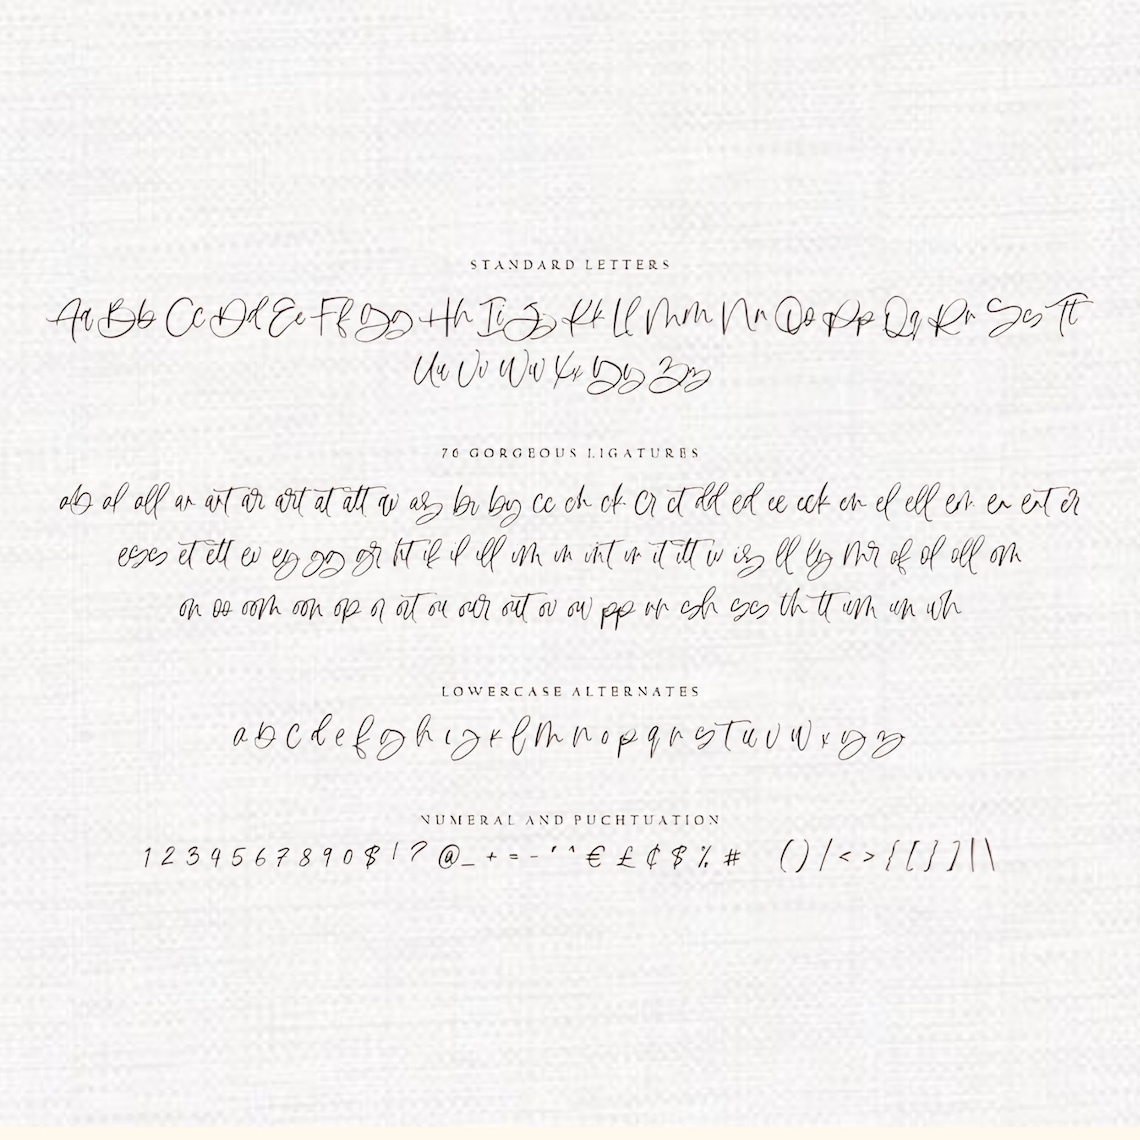 STANDARD LETTERS
Aa Bb Cc Dd Ee Ff Gg Hh Ii Jj Kk Ll Mm Nn Oo Pp Qq Rr Ss Tt
Uu Vv Ww Xx Yy Zz
76 GORGEOUS LIGATURES
ab al all an ant ar art at att av ay br by cc ch ck cr ct dd ed ee eek en el ell em er ert
eses et ett ev ey gg gr ht if il ill im in int ir it itt iv iy ll ly mr of ol oll om
on oo oom oon op or ort ou our out ov ow pp rr sh ss th tt um un wh
LOWERCASE ALTERNATES
a b c d e f g h i j k l m n o p q r s t u v w x y z
NUMERAL AND PUCHTUATION
1 2 3 4 5 6 7 8 9 0 $ ! ? @ _ + = - ' ^ € £ ¢ $ % # ( ) / < > { [ } ] | \